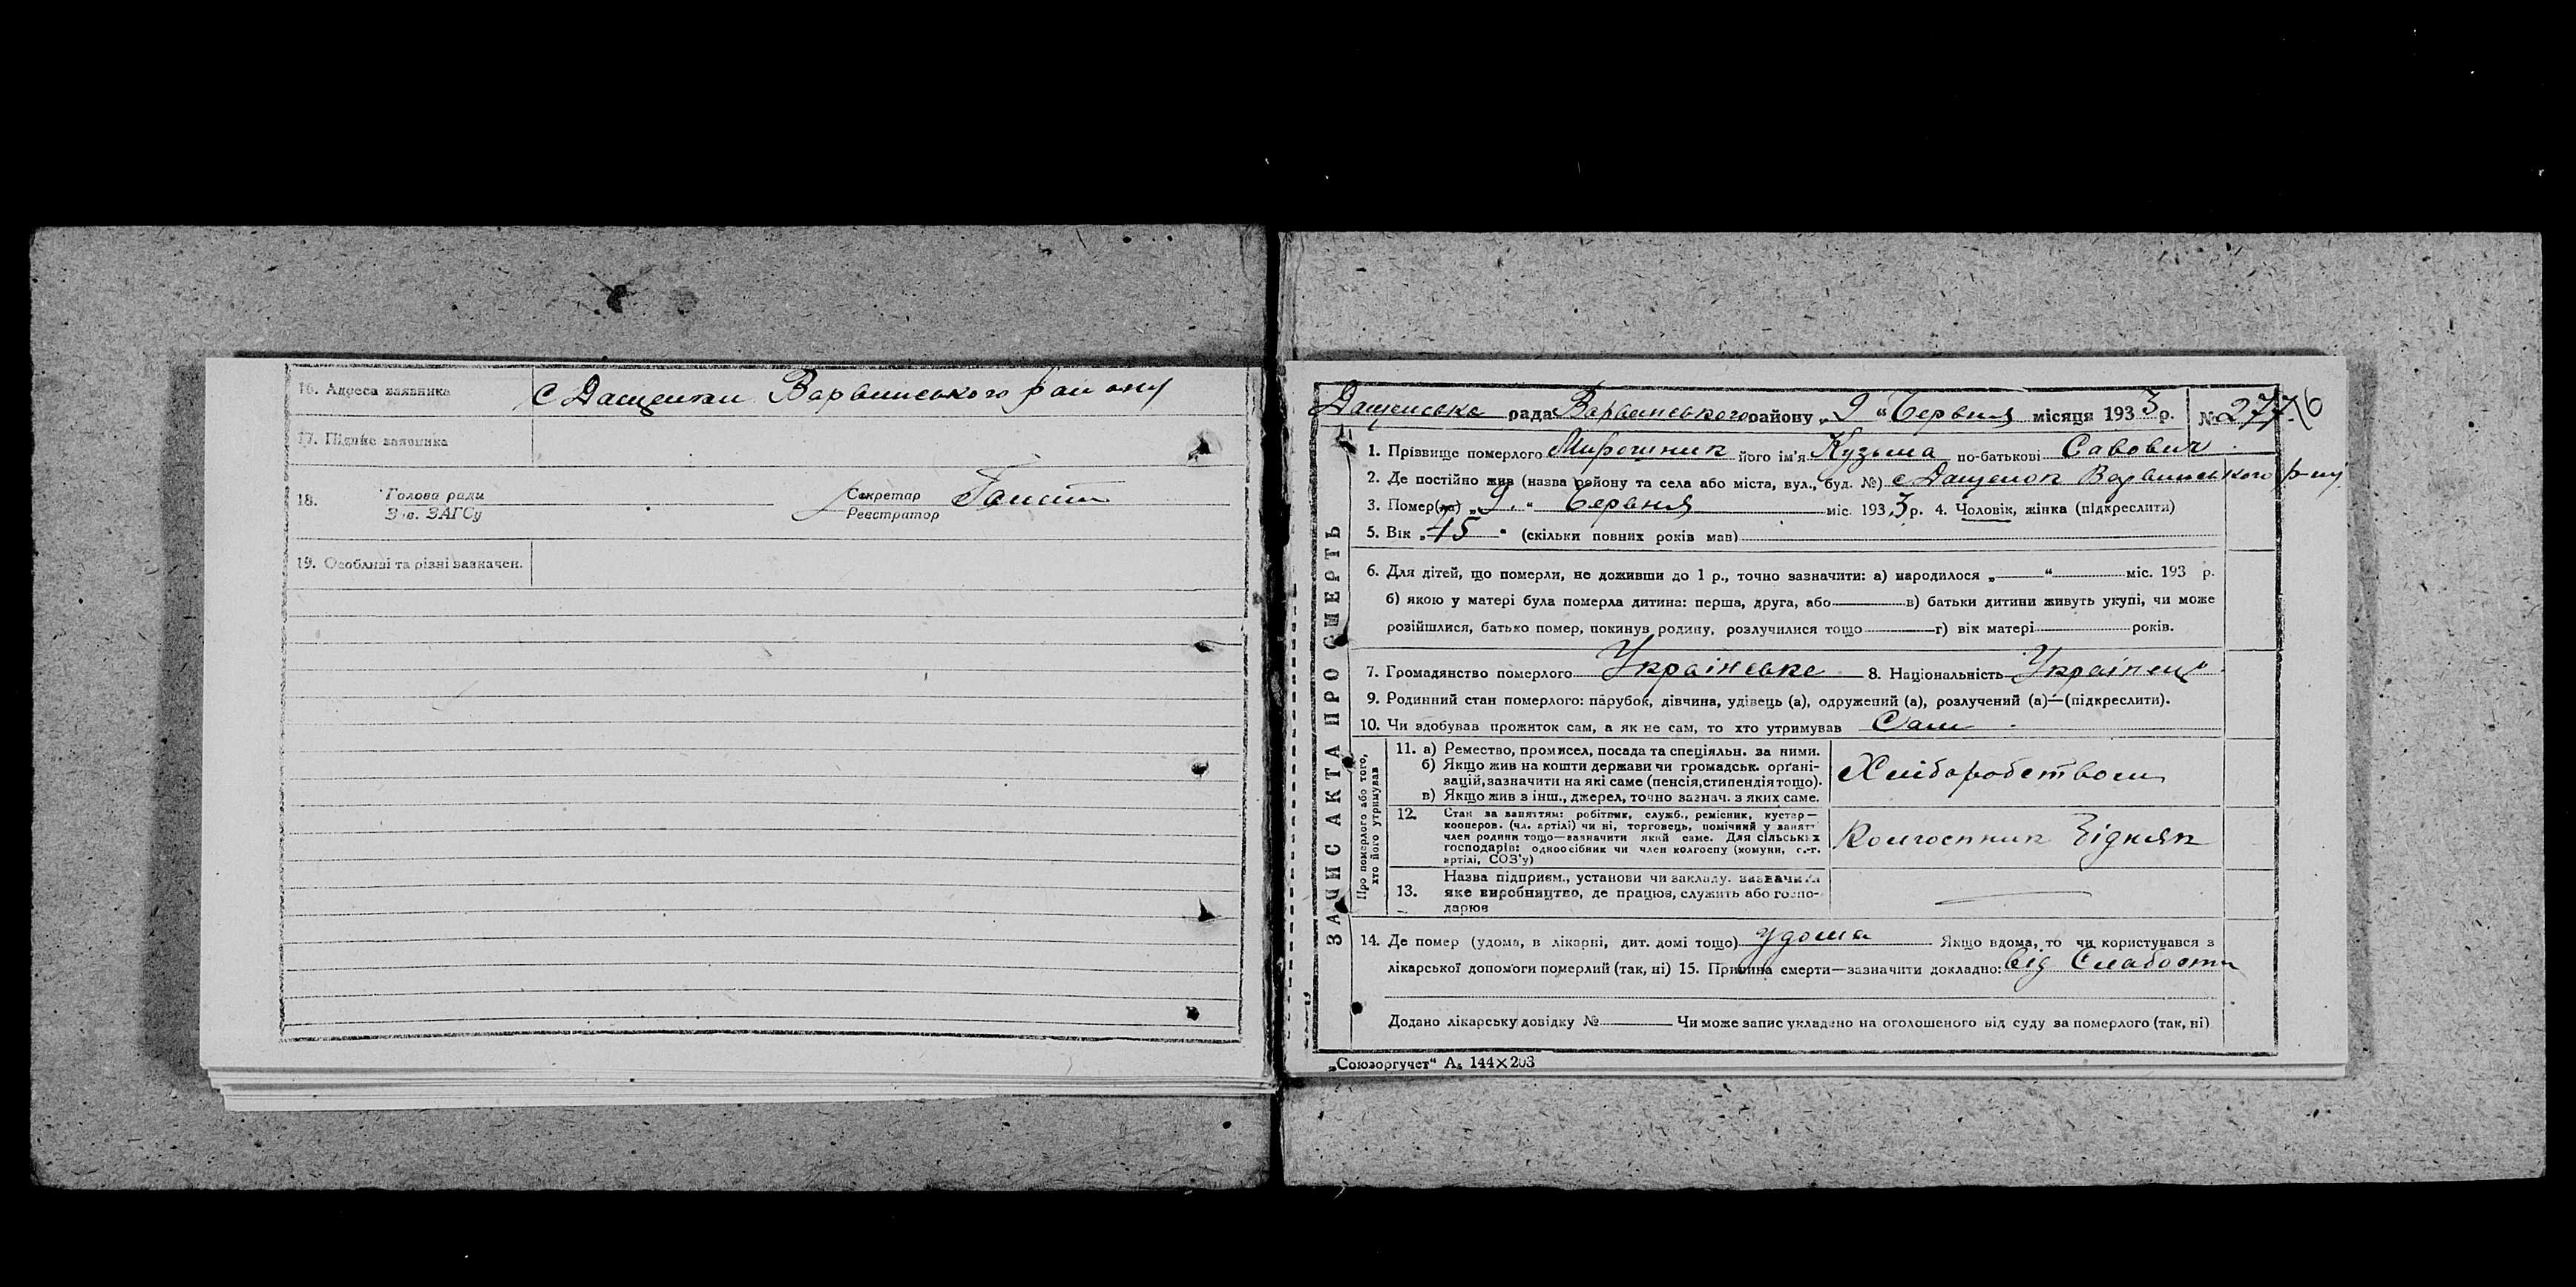 16. Адреса заявника с Дащенки Варвинського району
17. Підпис заявника
18. Голова ради Секретар
Зав. ЗАГСу Реєстратор
19. Особливі та різні зазначен.
Дащенська рада Варвинського району „9“ Червня місяця 1933 р. № 277
ЗАПИС АКТА ПРО СМЕРТЬ
1. Прізвище померлого Мирошник його ім'я Кузьма по-батькові Савович
2. Де постійно жив (назва району та села або міста, вул., буд. №) с Дащенок Варвинського р-ну
3. Помер(ла) „9.“ Червня міс. 1933 р. 4. Чоловік, жінка (підкреслити)
5. Вік „45“ (скільки повних років мав)
6. Для дітей, що померли, не доживши до 1 р., точно зазначити: а) народилося „ “ міс. 193 р.
б) якою у матері була померла дитина: перша, друга, або в) батьки дитини живуть укупі, чи може
розійшлися, батько помер, покинув родину, розлучилися тощо г) вік матері років.
7. Громадянство померлого Українське 8. Національність Українець
9. Родинний стан померлого: парубок, дівчина, удівець (а), одружений (а), розлучений (а)—(підкреслити).
10. Чи здобував прожиток сам, а як не сам, то хто утримував Сам
Про померлого або того,
хто його утримував
11. а) Ремество, промисел, посада та спеціяльн. за ними.
б) Якщо жив на кошти держави чи громадськ. орґані-
зацій, зазначити на які саме (пенсія, стипендія тощо).
в) Якщо жив з інш., джерел, точно зазнач. з яких саме.
Хліборобством
12. Стан за заняттям: робітник, служб., ремісник, кустар—
кооперов. (чл. артілі) чи ні, торговець, помічний у занятт
член родини тощо—зазначити який саме. Для сільських
господарів: одноосібник чи член колгоспу (комуни, с.-г.
артілі, СОЗ'у)
Колгоспник Бідняк
13. Назва підприєм., установи чи закладу. зазначити
яке виробництво, де працює, служить або госпо-
дарює
14. Де помер (удома, в лікарні, дит. домі тощо) удома Якщо вдома, то чи користувався з
лікарської допомоги померлий (так, ні) 15. Причина смерти—зазначити докладно: Від Слабости
Додано лікарську довідку № Чи може запис укладено на оголошеного від суду за померлого (так, ні)
„Союзоргучет“ А₅ 144×203